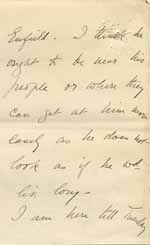 Enfield. I think he
ought to be near his
people or where they
can get at him more
easily as he does not
look as if he wd
live long –
I am here till Tuesday